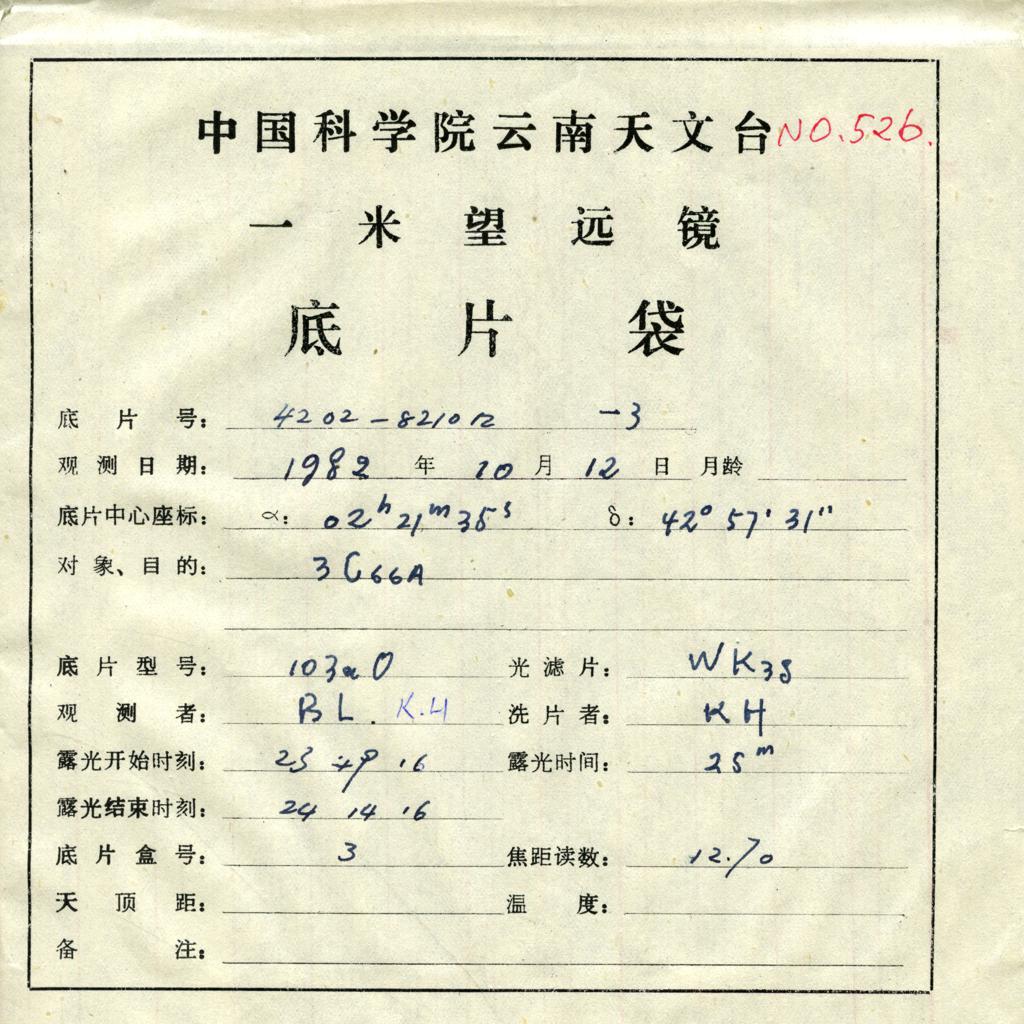 中国科学院云南天文台 NO.526.
一米望远镜
底片袋
底片号: 4202-821012 -3
观测日期: 1982 年 10 月 12 日 月龄
底片中心座标: α: 02h 21m 35s δ: 42° 57' 31"
对象、目的: 3C66A
底片型号: 103aO 光滤片: WK38
观测者: BL. K.H 洗片者: KH
露光开始时刻: 23 49 16 露光时间: 25m
露光结束时刻: 24 14 16
底片盒号: 3 焦距读数: 12.70
天顶距: 温度:
备注: